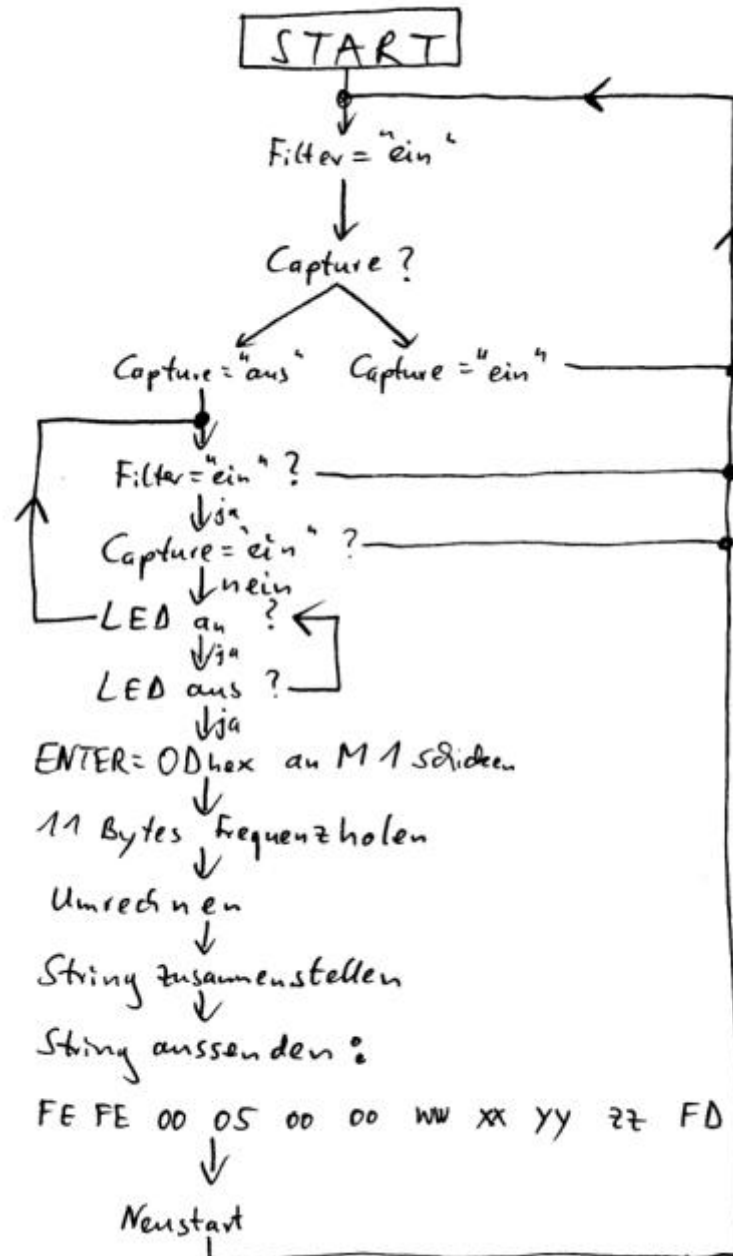 START
Filter = "ein"
Capture ?
Capture = "aus" Capture = "ein"
Filter = "ein" ?
ja
Capture = "ein" ?
nein
LED an ?
ja
LED aus ?
ja
ENTER = 0Dhex an M1 schicken
11 Bytes Frequenz holen
Umrechnen
String zusammenstellen
String aussenden :
FE FE 00 05 00 00 WW XX YY ZZ FD
Neustart